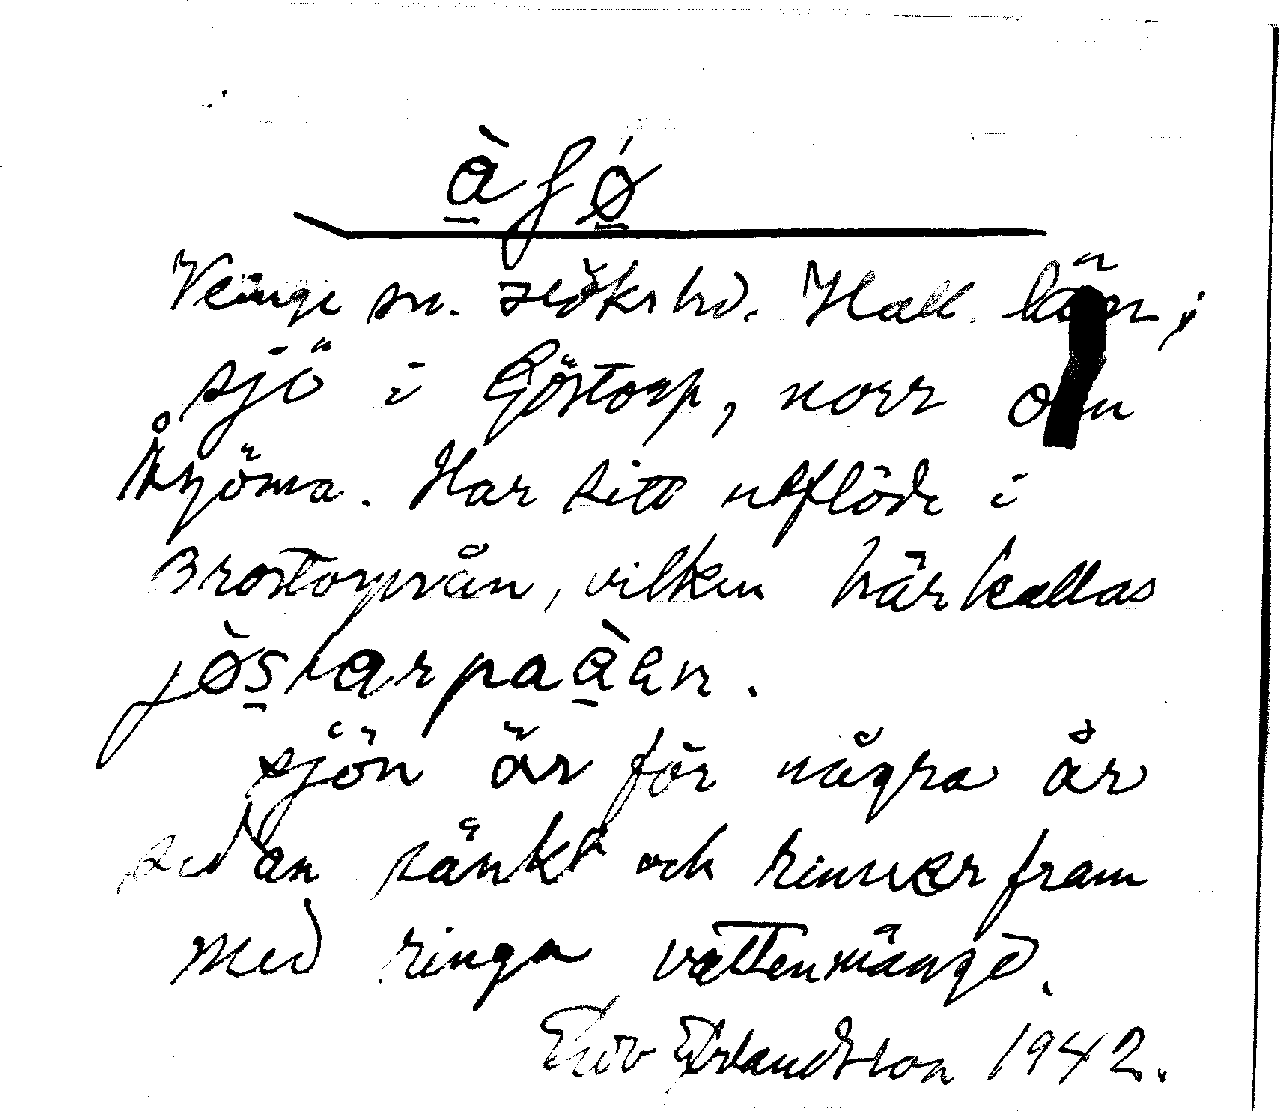 àfǿ
Veinge sn. Höks hd. Hall. län;
sjö i Göstorp, norr om
Åbjöma. Har sitt utflöde i
Brostorpsån, vilken här kallas
jøstarpaàen.
Sjön är för några år
sedan sänkt och rinner fram
med ringa vattenmängd.
Erlandsson 1942.